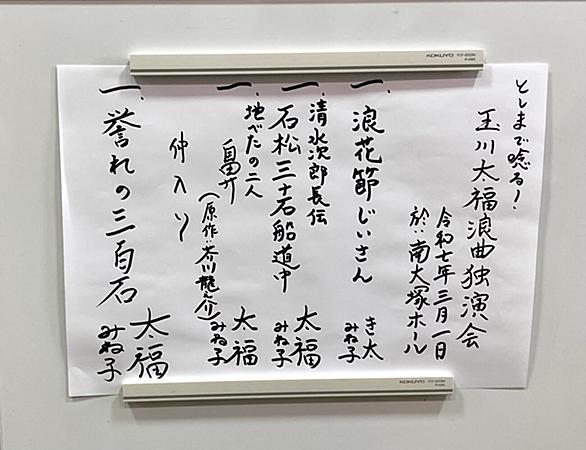 としまで唸る！
玉川太福浪曲独演会
令和七年三月一日
於：南大塚ホール
一、浪花節じいさん
き太
みね子
一、清水次郎長伝
石松三十石船道中
太福
みね子
一、地べたの二人
（原作：芥川龍之介）
太福
みね子
仲入り
一、誉れの三百石
太福
みね子
KOKUYO
KOKUYO